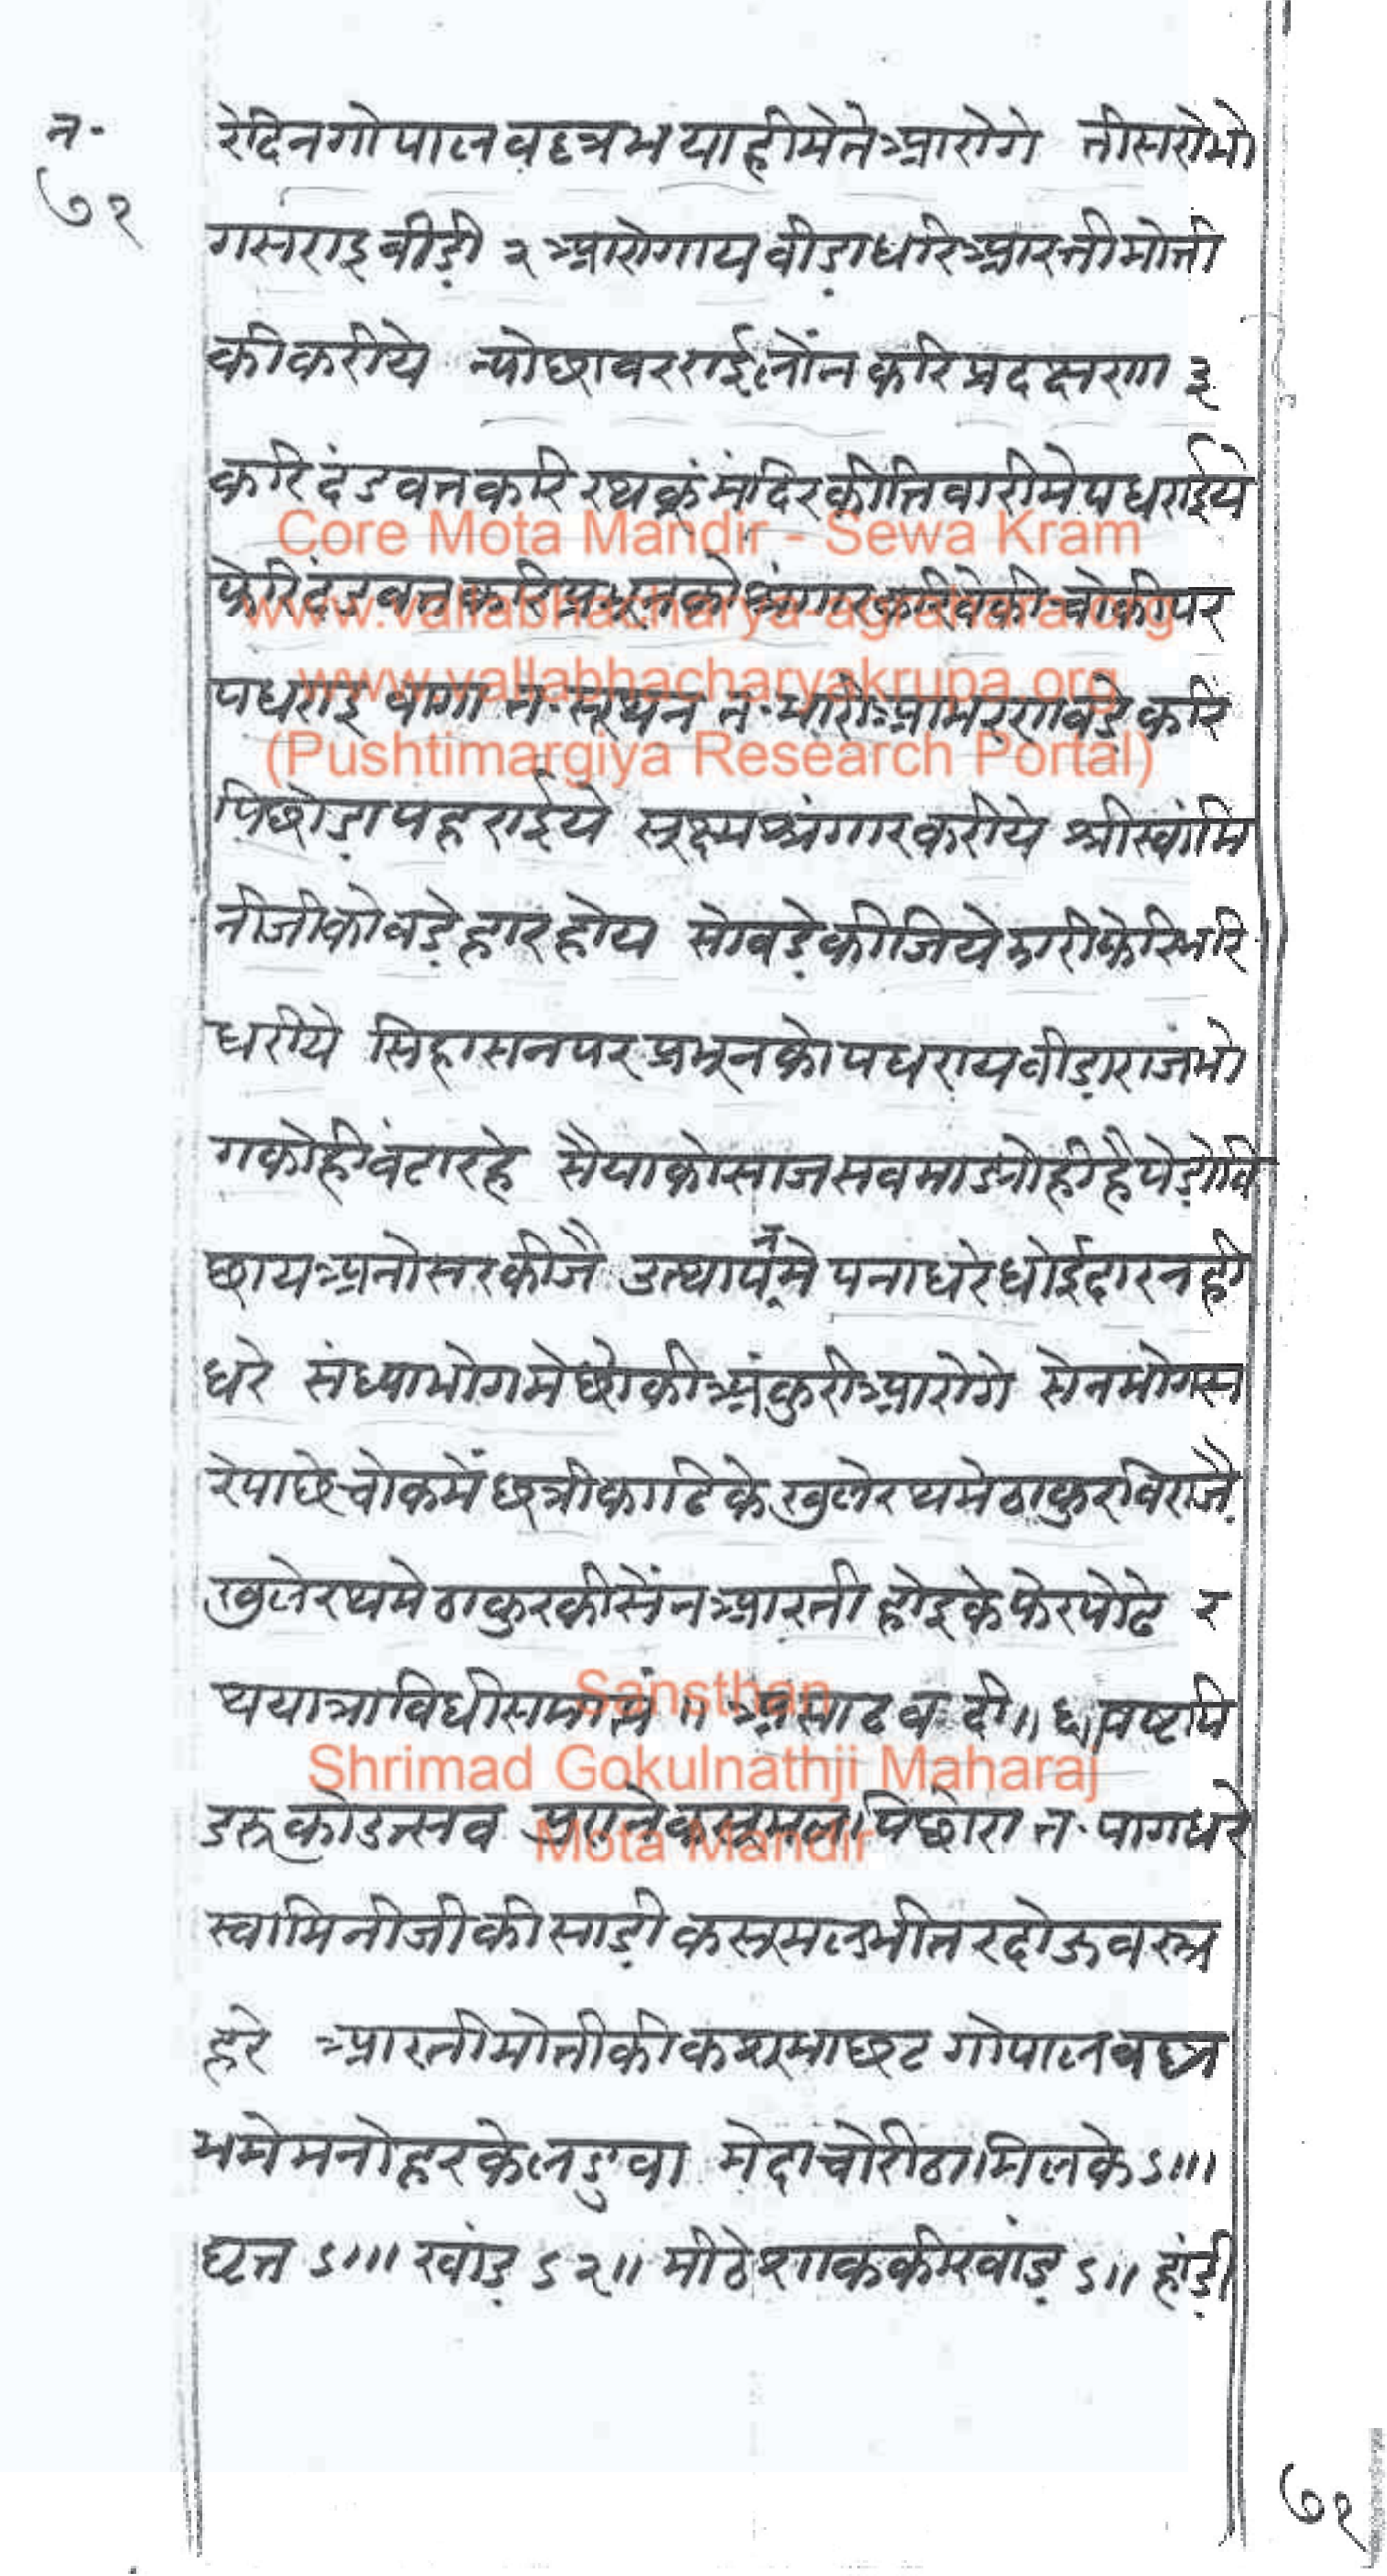 न॰
७१
रेदिनगोपालवल्लभयाहीमेतेआरोगे तीसरोभो
गसराइबीड़ी २ आरोगायवीड़ाधरिआरतीमोती
कीकरीये न्योछावरराईलोंनकरिप्रदक्षरणा ३
करिदंडवतकरिरथकूंमंदिरकीतिवारीमेपधराईये
फेरिदंडवतकरिप्रभूनकोश्रंगारकरिवेकीचोकीपर
पधराइ वागा त॰सूथन त॰भारीआभरणवड़ेकरि
पिछोड़ापहराईये सूक्ष्मश्रंगारकरीये श्रीस्वांमि
नीजीकोवड़ेहारहोय सोवड़ेकीजियेझारीफेरिभरि
धरीये सिंहासनपरप्रभूनकोपधरायवीड़ाराजभो
गकोहीवंटारहे सैयाकोसाजसवमाड्योहीहैपेड़ोवि
छायअनोसरकीजै उत्थापनमेपनाधरेधोईदारनही
धरे संध्याभोगमेछोकीअंकुरीआरोगे सेनभोगस
रेपाछेचोकमेंछत्रीकाढिकेखुलेरथमेठाकुरविराजै
खुलेरथमेठाकुरकीसेंनआरतीहोइकेफेरपोढे र
थयात्राविधीसमाप्तं॥ असाढ व दी॥६॥षष्टपि
डरूकोउत्सव कसूमलपिछोरा त॰पागधरे
स्वामिनीजीकीसाड़ीकसूमलभीतरदोऊवस्त्र
हरे आरतीमोतीकी गोपालवल्ल
भमेमनोहरकेलडुवा मेदाचोरीठामिलके ऽ॥।
घृत ऽ॥। खांड़ ऽ२॥ मीठेशाककीखांड़ ऽ॥ हांड़ी
Core Mota Mandir - Sewa Kram
www.vallabhacharya-agrahara.org
www.vallabhacharyakrupa.org
(Pushtimargiya Research Portal)
Sansthan
Shrimad Gokulnathji Maharaj
Mota Mandir
७१